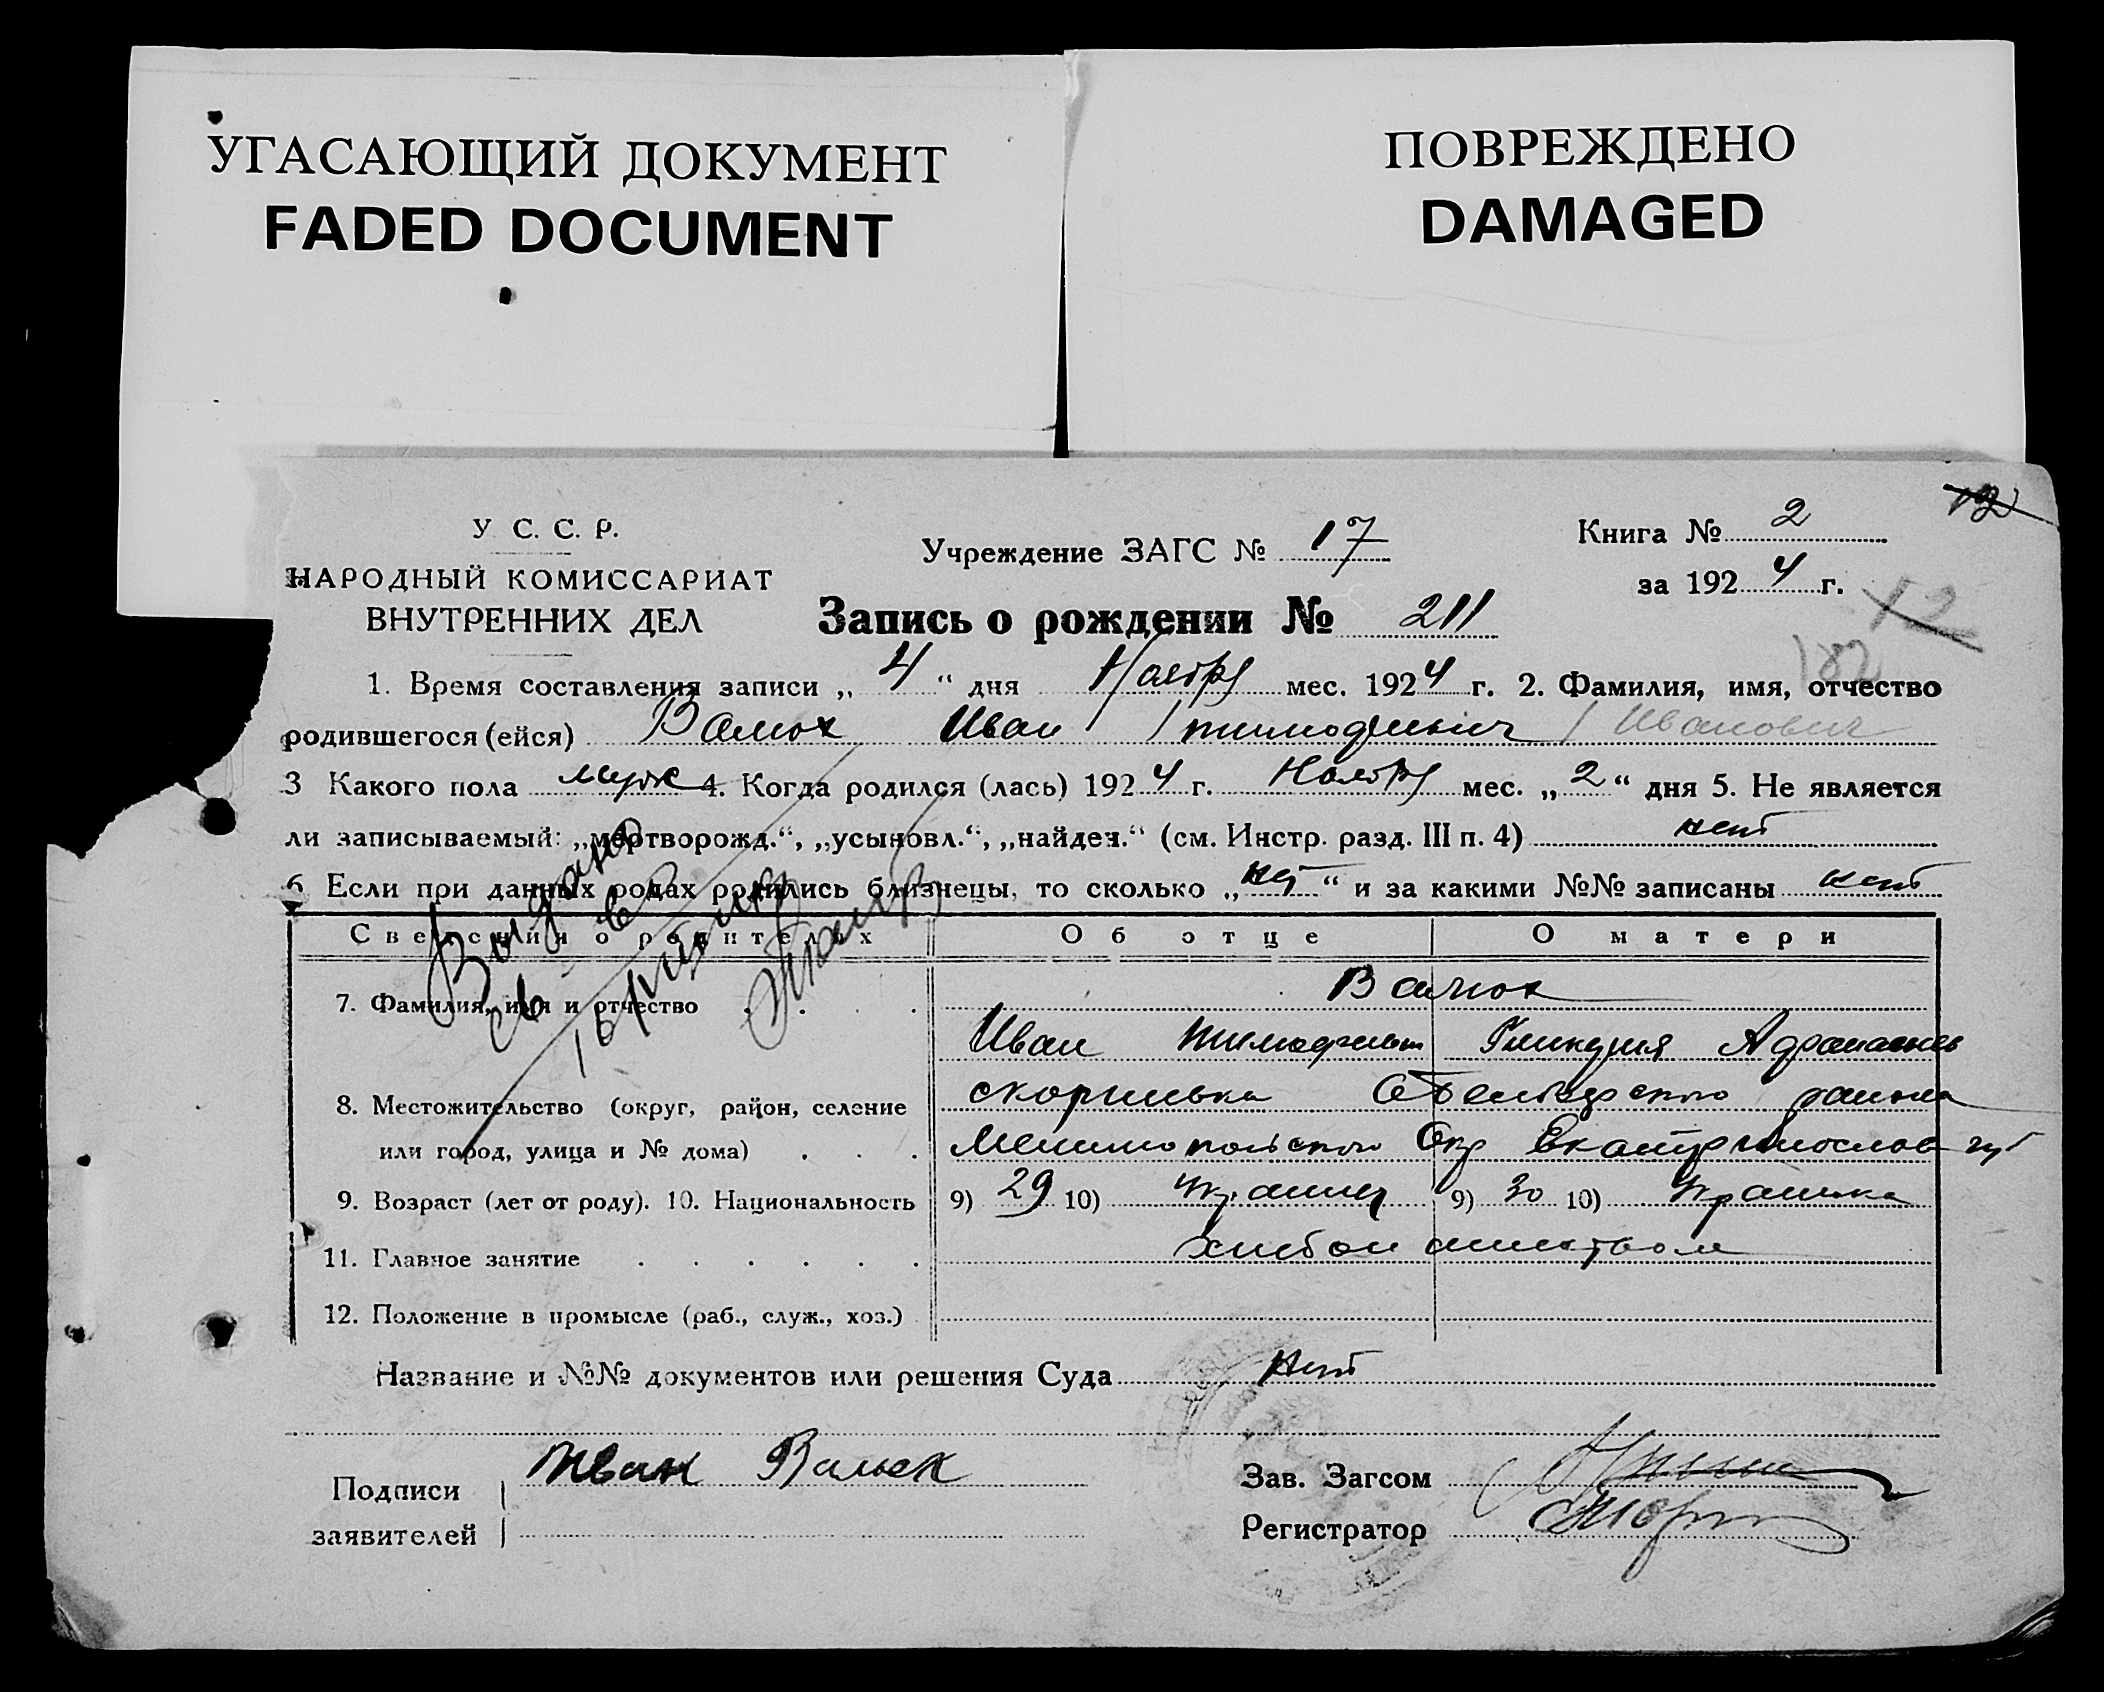 УГАСАЮЩИЙ ДОКУМЕНТ
FADED DOCUMENT
ПОВРЕЖДЕНО
DAMAGED
12
У. С. С. Р.
НАРОДНЫЙ КОМИССАРИАТ
ВНУТРЕННИХ ДЕЛ
Учреждение ЗАГС № 17
Книга № 2
за 1924 г.
12
182
Запись о рождении № 211
1. Время составления записи „ 4 “ дня Ноября мес. 1924 г. 2. Фамилия, имя, отчество
родившегося (ейся) Валюх Иван Тимофеевич / Иванович
3 Какого пола муж 4. Когда родился (лась) 1924 г. Ноября мес. „ 2 “ дня 5. Не является
ли записываемый: „мертворожд.“, „усыновл.“, „найден.“ (см. Инстр. разд. III п. 4) нет
6 Если при данных родах родились близнецы, то сколько „ нет “ и за какими №№ записаны нет
Выдано
Сведения о родителях Об отце О матери
7. Фамилия, имя и отчество Валюх
Иван Гликерия
8. Местожительство (округ, район, селение района
или город, улица и № дома) Мелитопольского Окр Екатеринослав губ
9. Возраст (лет от роду). 10. Национальность 9) 29 10) Украинец 9) 30 10) Украинка
11. Главное занятие хлебопашеством
12. Положение в промысле (раб., служ., хоз.)
Название и №№ документов или решения Суда нет
Подписи
заявителей
Иван Валюх
Зав. Загсом
Регистратор